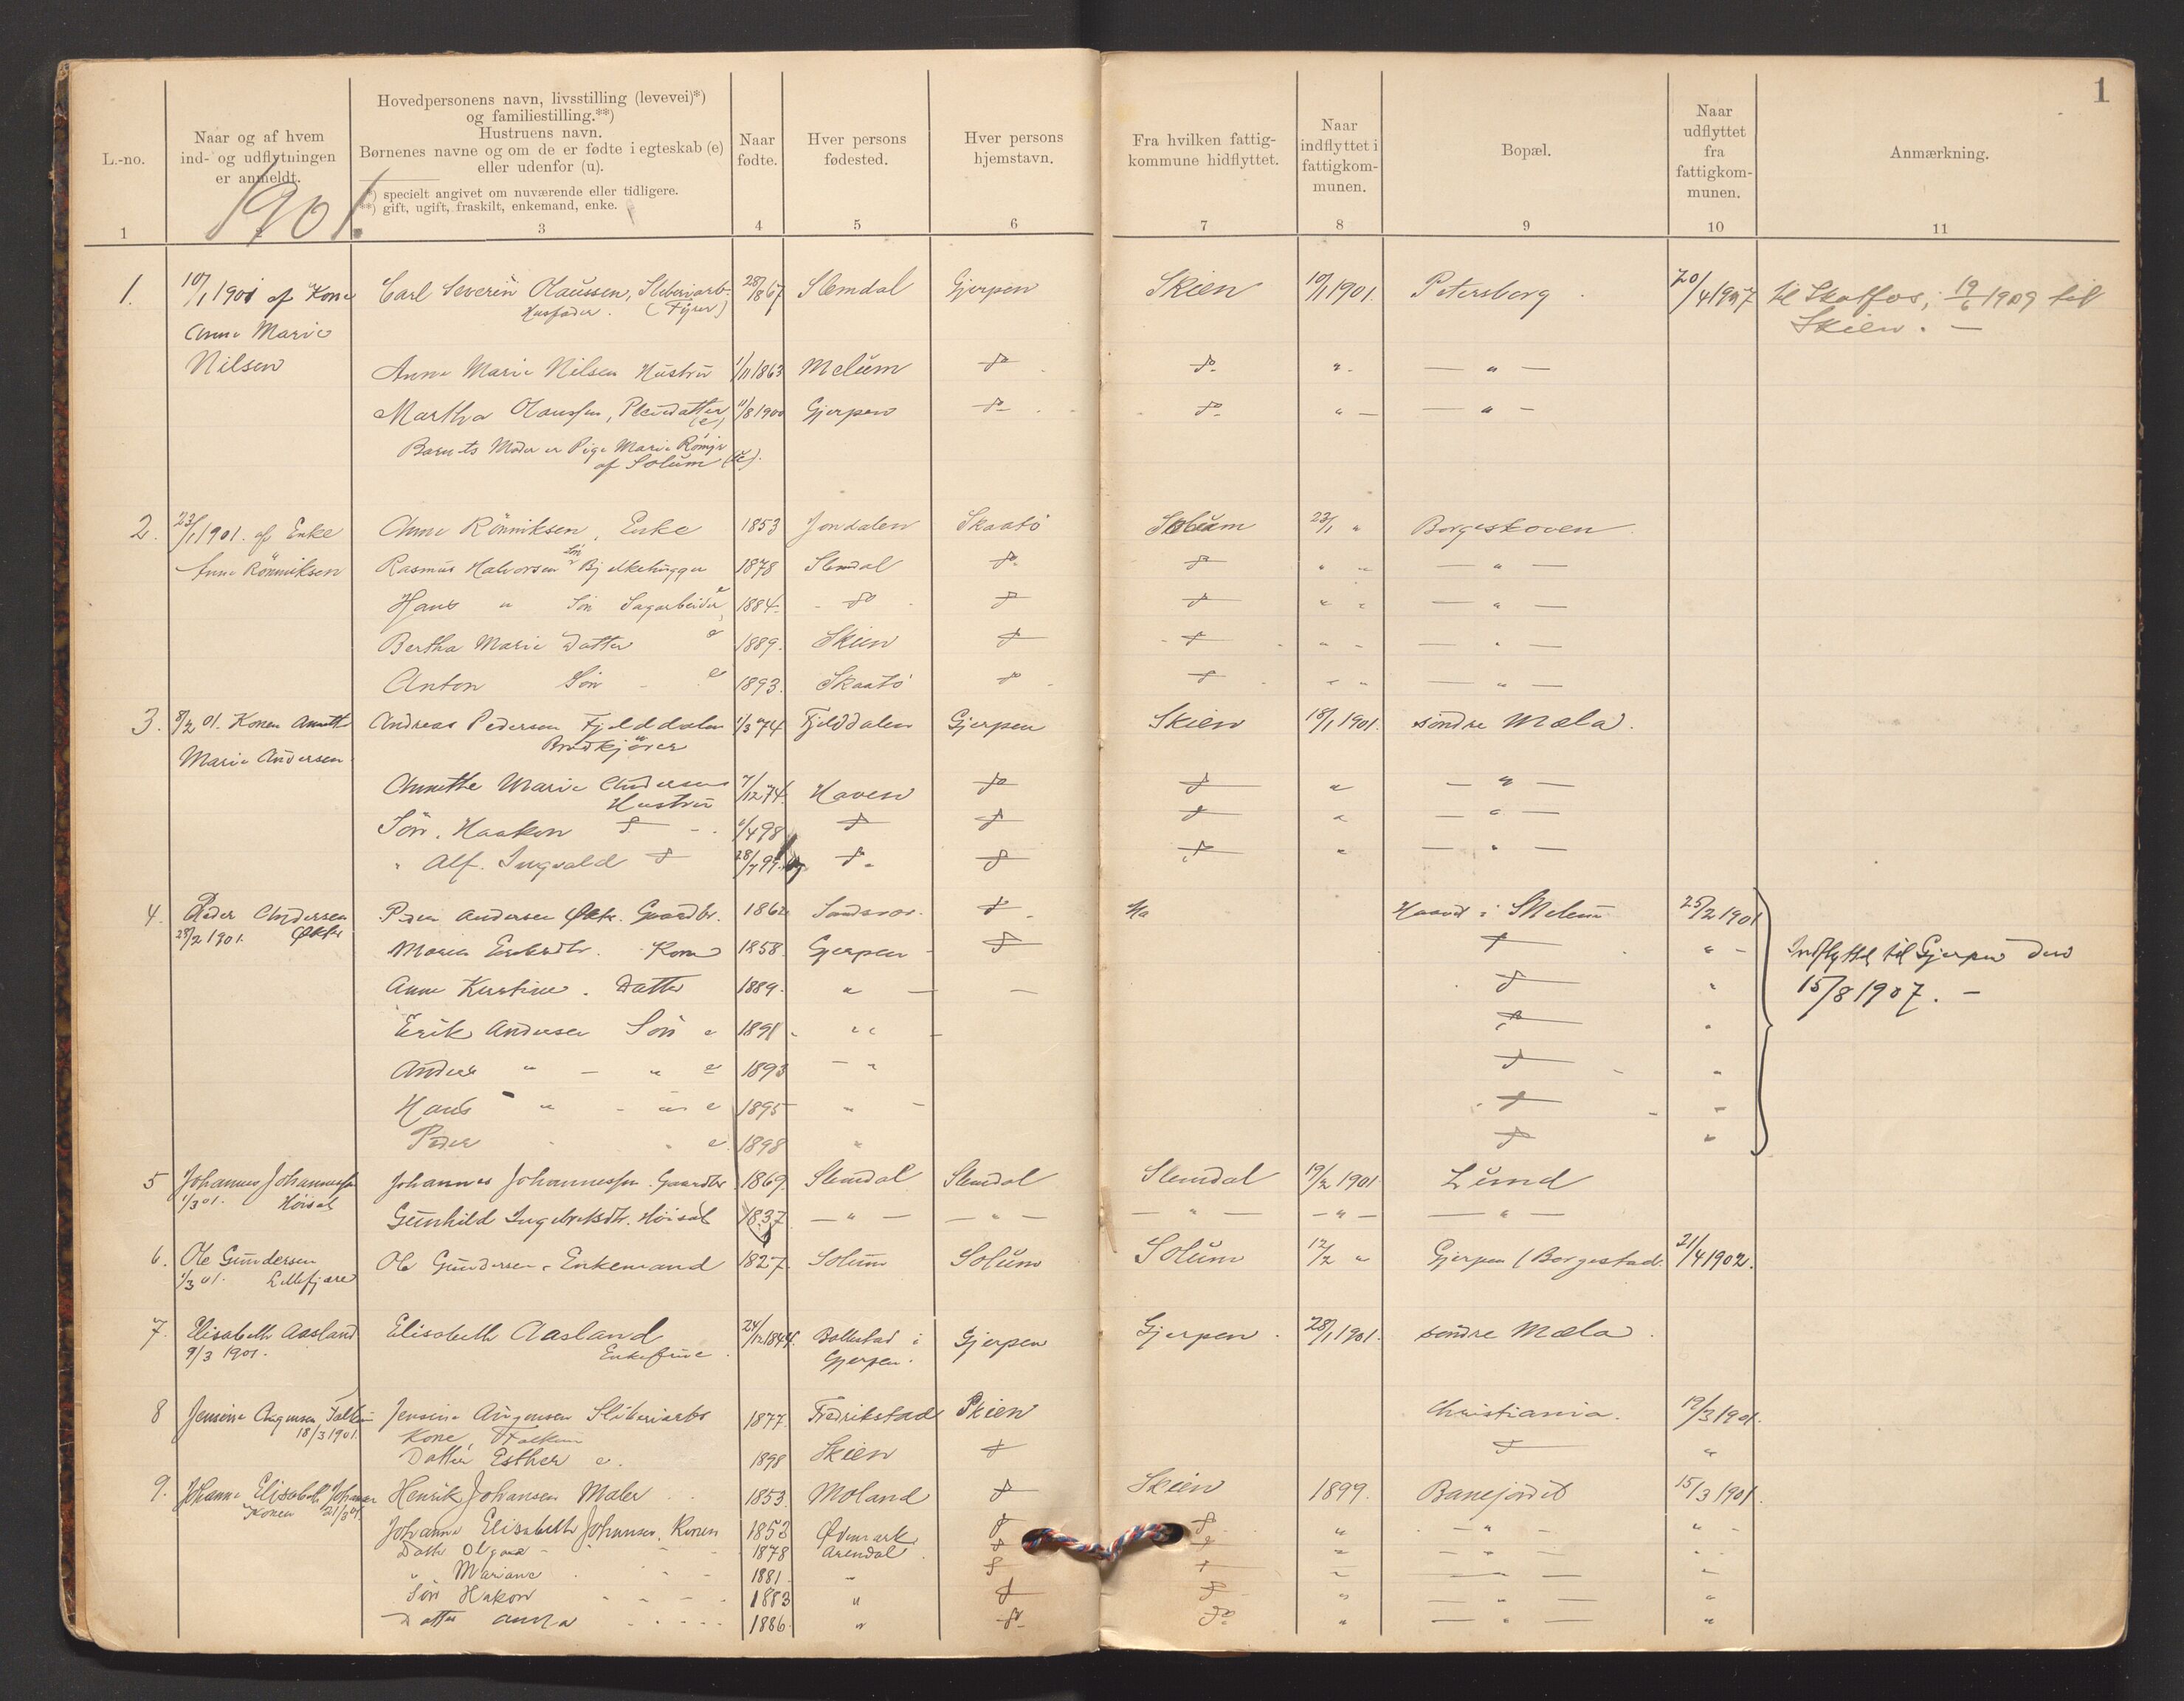 1
L.-no.
Naar og af hvem
ind- og udflytningen
er anmeldt.
Hovedpersonens navn, livsstilling (levevei)*)
og familiestilling.**)
Hustruens navn.
Børnenes navne og om de er fødte i egteskab (e)
eller udenfor (u).
*) specielt angivet om nuværende eller tidligere.
**) gift, ugift, fraskilt, enkemand, enke.
Naar
fødte.
Hver persons
fødested.
Hver persons
hjemstavn.
Fra hvilken fattig-
kommune hidflyttet.
Naar
indflyttet i
fattigkom-
munen.
Bopæl.
Naar
udflyttet
fra
fattigkom-
munen.
Anmærkning.
1901.
1 2 3 4 5 6 7 8 9 10 11
1. 10/1 1901 af Kone Carl Severin Olaussen, Sliberiarb. 28/8 67 Slemdal Gjerpen Skien 10/1 1901. Petersborg 20/4 1907 til Skotfos; 19/6 1909 til
Husfader. (Fyrer) Skien. —
Anne Marie
Nilsen Anne Marie Nilsen Hustru 1/11 1863 Melum do do " — " —
Martha Olaussen, Pleiedatter 11/8 1900 Gjerpen do do " — " —
Barnets Moder er Pige Marie
af Solum
2. 23/1 1901. af Enke Anne Rönniksen, Enke 1853 Jondalen Skaatö Solum 23/1 " Borgeskoven
Anne Rönniksen Rasmus Halvorsen Sön Bjelkehugger 1878 Slemdal do do " " — " —
Hans " Sön Sagarbeider 1884 do do do " " — " —
Bertha Marie Datter e 1889. Skien do do " " — " —
Anton Sön e 1893. Skaatö do do " " — " —
3. 8/2 01. Konen Anette Andreas Pedersen Fjelddalen 1/3 74 Fjelddalen Gjerpen Skien 18/1 1901 söndre Mæla.
Marie Andersen Brödkjörer
Annethe Marie Andersen 7/12 74. Haven do do " — " —
Hustru
Sön. Haakon do /4 98 do do do " — " —
" Alf. Ingvald do 28/ 99. do do do " — " —
4. Peder Andersen Peder Andersen Gaardbr. 1862 Sandsvær do Haavet i Melum 25/2 1901
28/2 1901. Maren Kone 1858. Gjerpen do do " Indflyttet til Gjerpen den
Anne Kirstine. Datter 1889. " — — do " 15/8 1907. —
Erik Andersen Sön e 1891 " do "
Anders " — " e 1893 — " do "
Hans " " e 1895 " do "
Peder " " e 1898 " do "
5 Johannes Johannessen Johannes Johannessen. Gaardbr. 1869. Slemdal Slemdal Slemdal 19/2 1901 Lund
1/3 01. Höisæt Gunhild Ingebretsdtr. Höisæt 1837 — " — — " — — " — — " — — " —
6. Ole Gundersen Ole Gundersen. Enkemand 1827. Solum Solum Solum 12/2 " Gjerpen (Borgestad. 21/4 1902.
1/3 01.
7. Elisabeth Aasland Elisabeth Aasland 24/12 1844. Bollestad i Gjerpen Gjerpen. 28/1 1901. söndre Mæla.
9/3 1901. Enkefrue Gjerpen.
8 Jensine Falkum Jensine Sliberiarbs 1877. Fredrikstad Skien Christiania. 12/3 1901.
18/3 1901. Kone, Falkum
Datter Esther e. 1898 Skien do do "
9. Johanne Elisabeth Johansen Henrik Johansen Maler 1853. Moland do Skien 1899. Banejordet 15/3 1901.
Konen 21/3 01. Johanne Elisabeth Johansen. Konen 1853 do do " — " — " —
Datt. Olga 1878 Arendal. do do " — " —
" Mariane 1881. " do do " — " —
Sön Hakon 1883 " do do " — " — "
Datter Anna 1886. " do do " — " — "